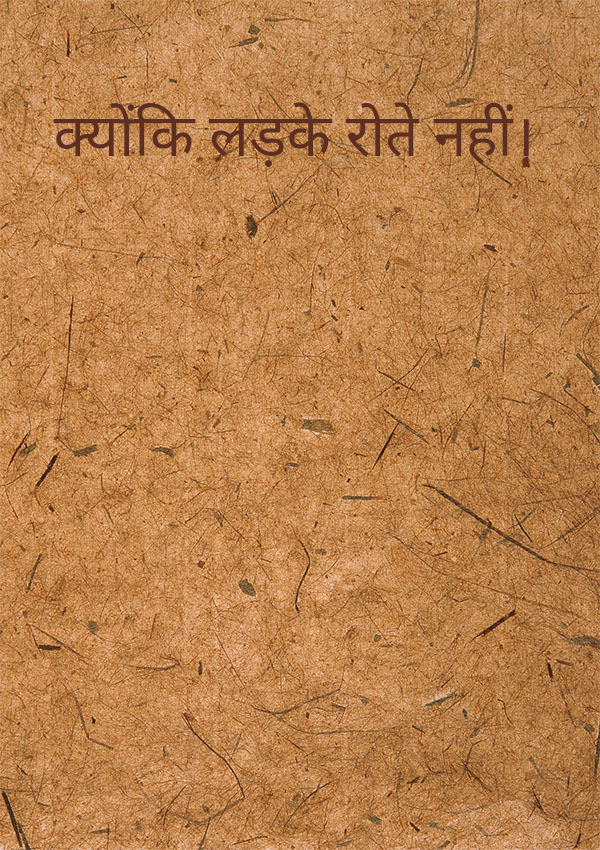 क्योंकि लड़के रोते नहीं।